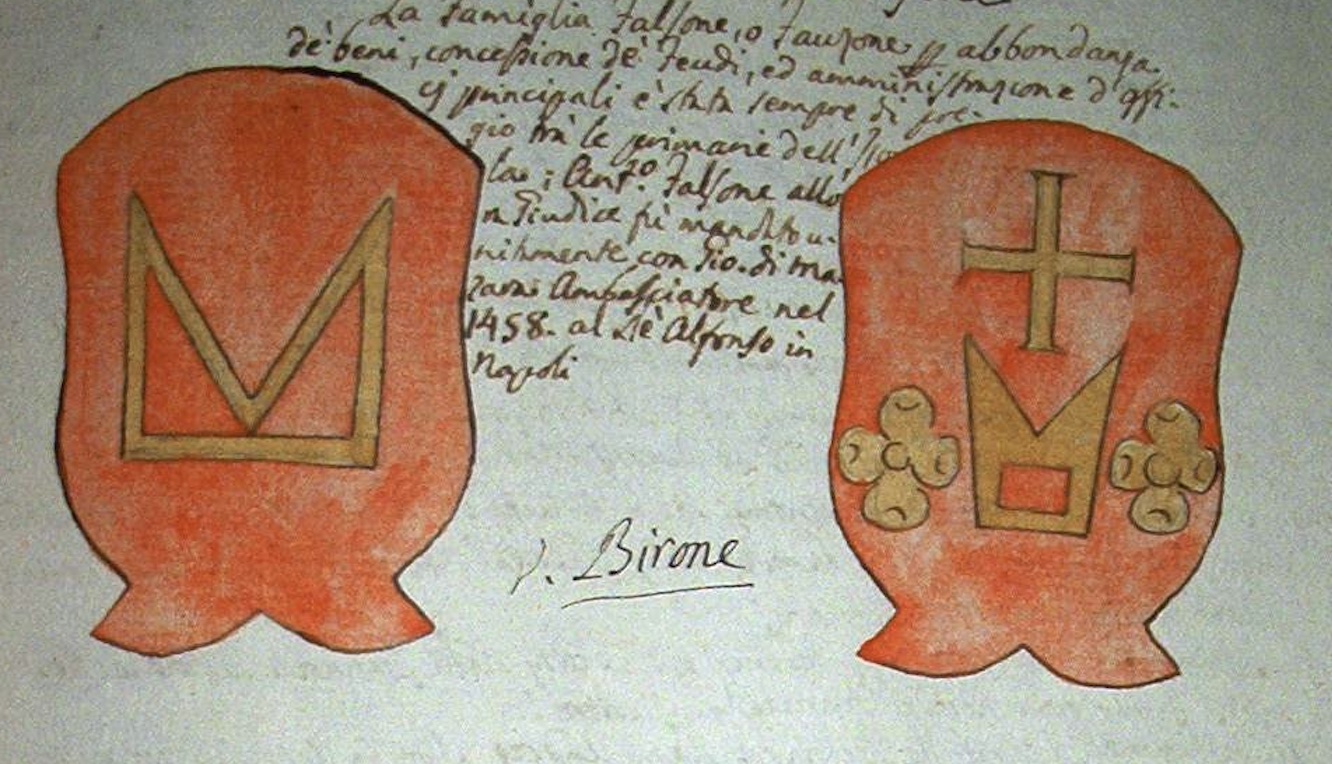 La Famiglia Falsone, o Fauzone p abbondanza
de' beni, concessione de' feudi, ed amministrazione d'offi-
cj principali è stata sempre di pre-
gio trà le primarie dell'
la; Ant.º Falsone allo
ra Giudice fù mandato u-
nitamente con Gio. di ma-
Ambasciatore nel
1458. al Rè Alfonso in
Napoli
v. Birone